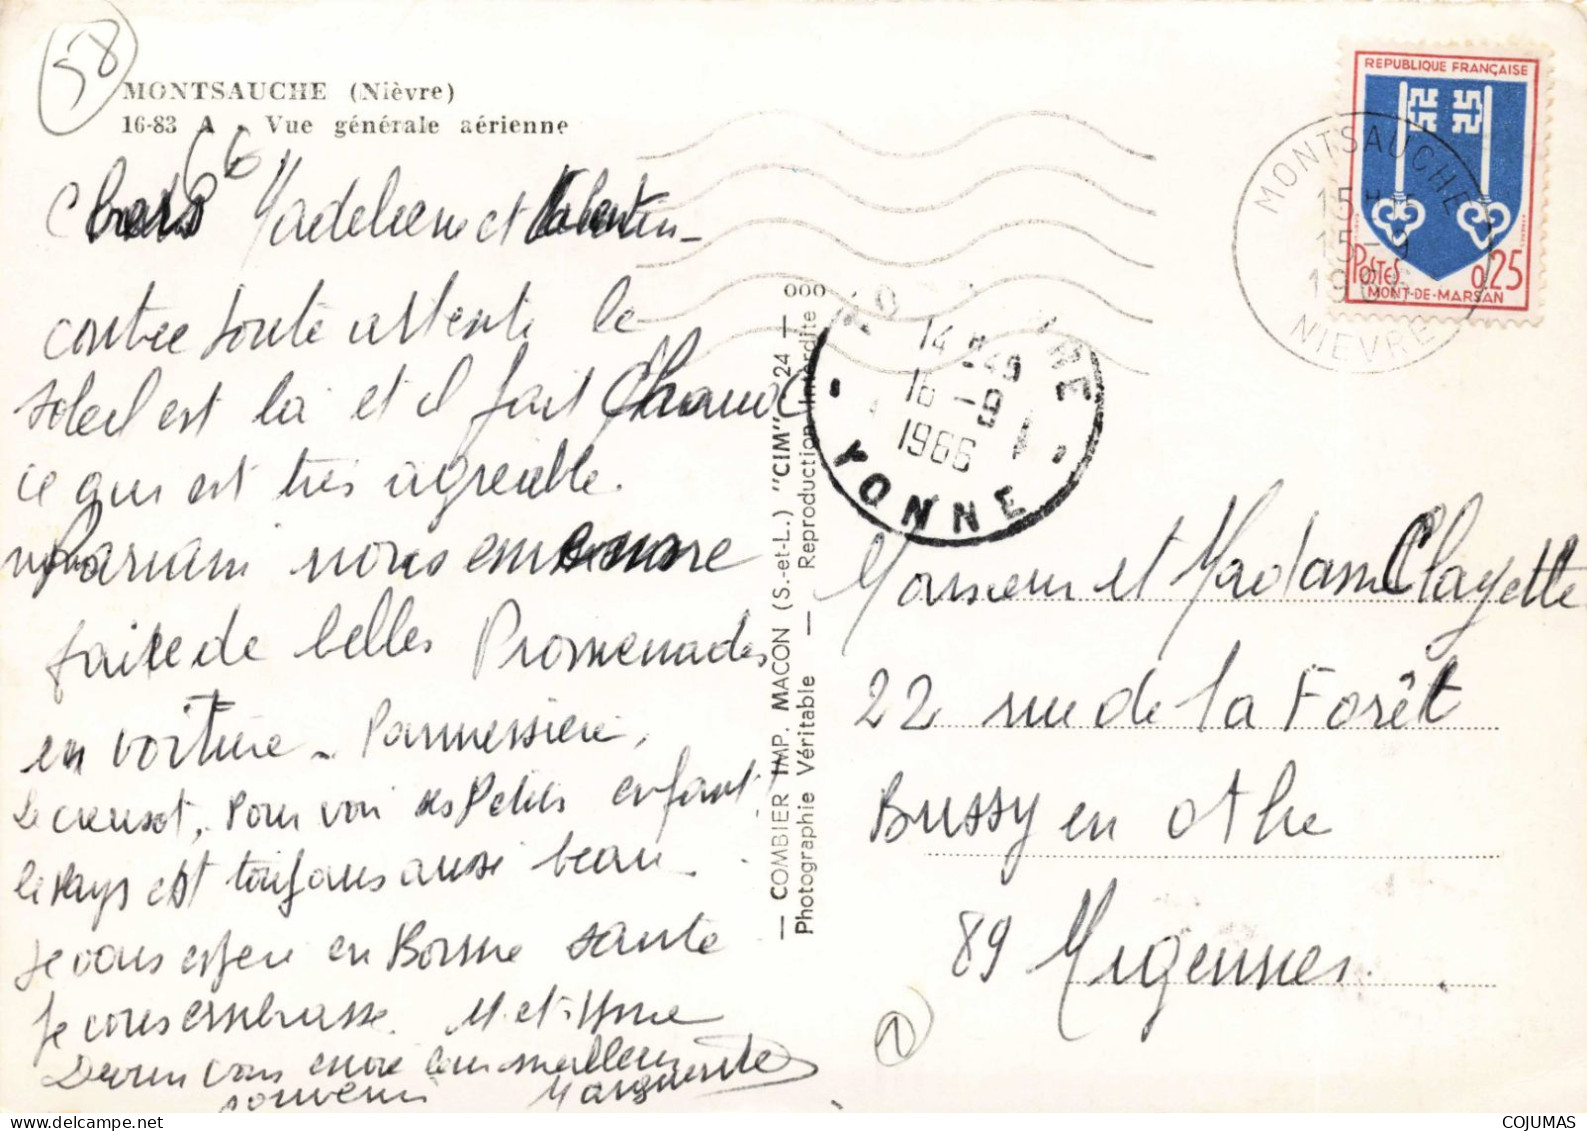 58
MONTSAUCHE (Nièvre)
16-83 A - Vue générale aérienne
66
Chers Madeleine et Valentin -
contre toute attente le
soleil est là et il fait Chaud
ce qui est très agréable.
nous
faire de belles Promenades
en voiture - Pannessière,
Le creusot, Pour voir ses Petits enfants
le Pays est toujours aussi beau
Je vous espère en Bonne santé
Je vous embrasse. M. et
meilleurs
souvenirs Marguerite
— COMBIER IMP. MACON (S.-et-L.) "CIM" 24 —
Photographie Véritable — Reproduction Interdite
000
REPUBLIQUE FRANÇAISE
POSTES 0,25
MONT-DE-MARSAN
MONTSAUCHE
15H
15-9
1966
NIEVRE
14 H
16-9
1966
YONNE
Monsieur et Madame Clayette
22 rue de la Forêt
Bussy en Othe
89 Migennes.
1
COJUMAS